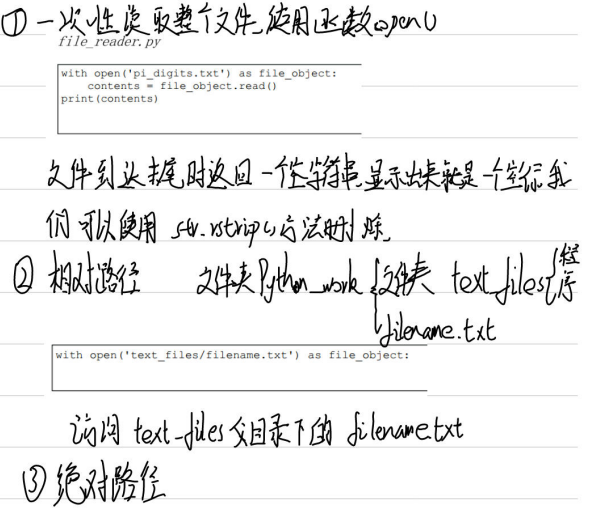 ① 一次性读取整个文件,使用函数open()
file_reader.py
with open('pi_digits.txt') as file_object:
    contents = file_object.read()
print(contents)
文件到达末尾时返回一个空字符串,显示出来就是一个空行,我
们可以使用 str.rstrip()方法删除.
② 相对路径 文件夹Python_work { 文件夹 text_files { 程序
filename.txt
with open('text_files/filename.txt') as file_object:
访问 text_files父目录下的 filename.txt
③ 绝对路径